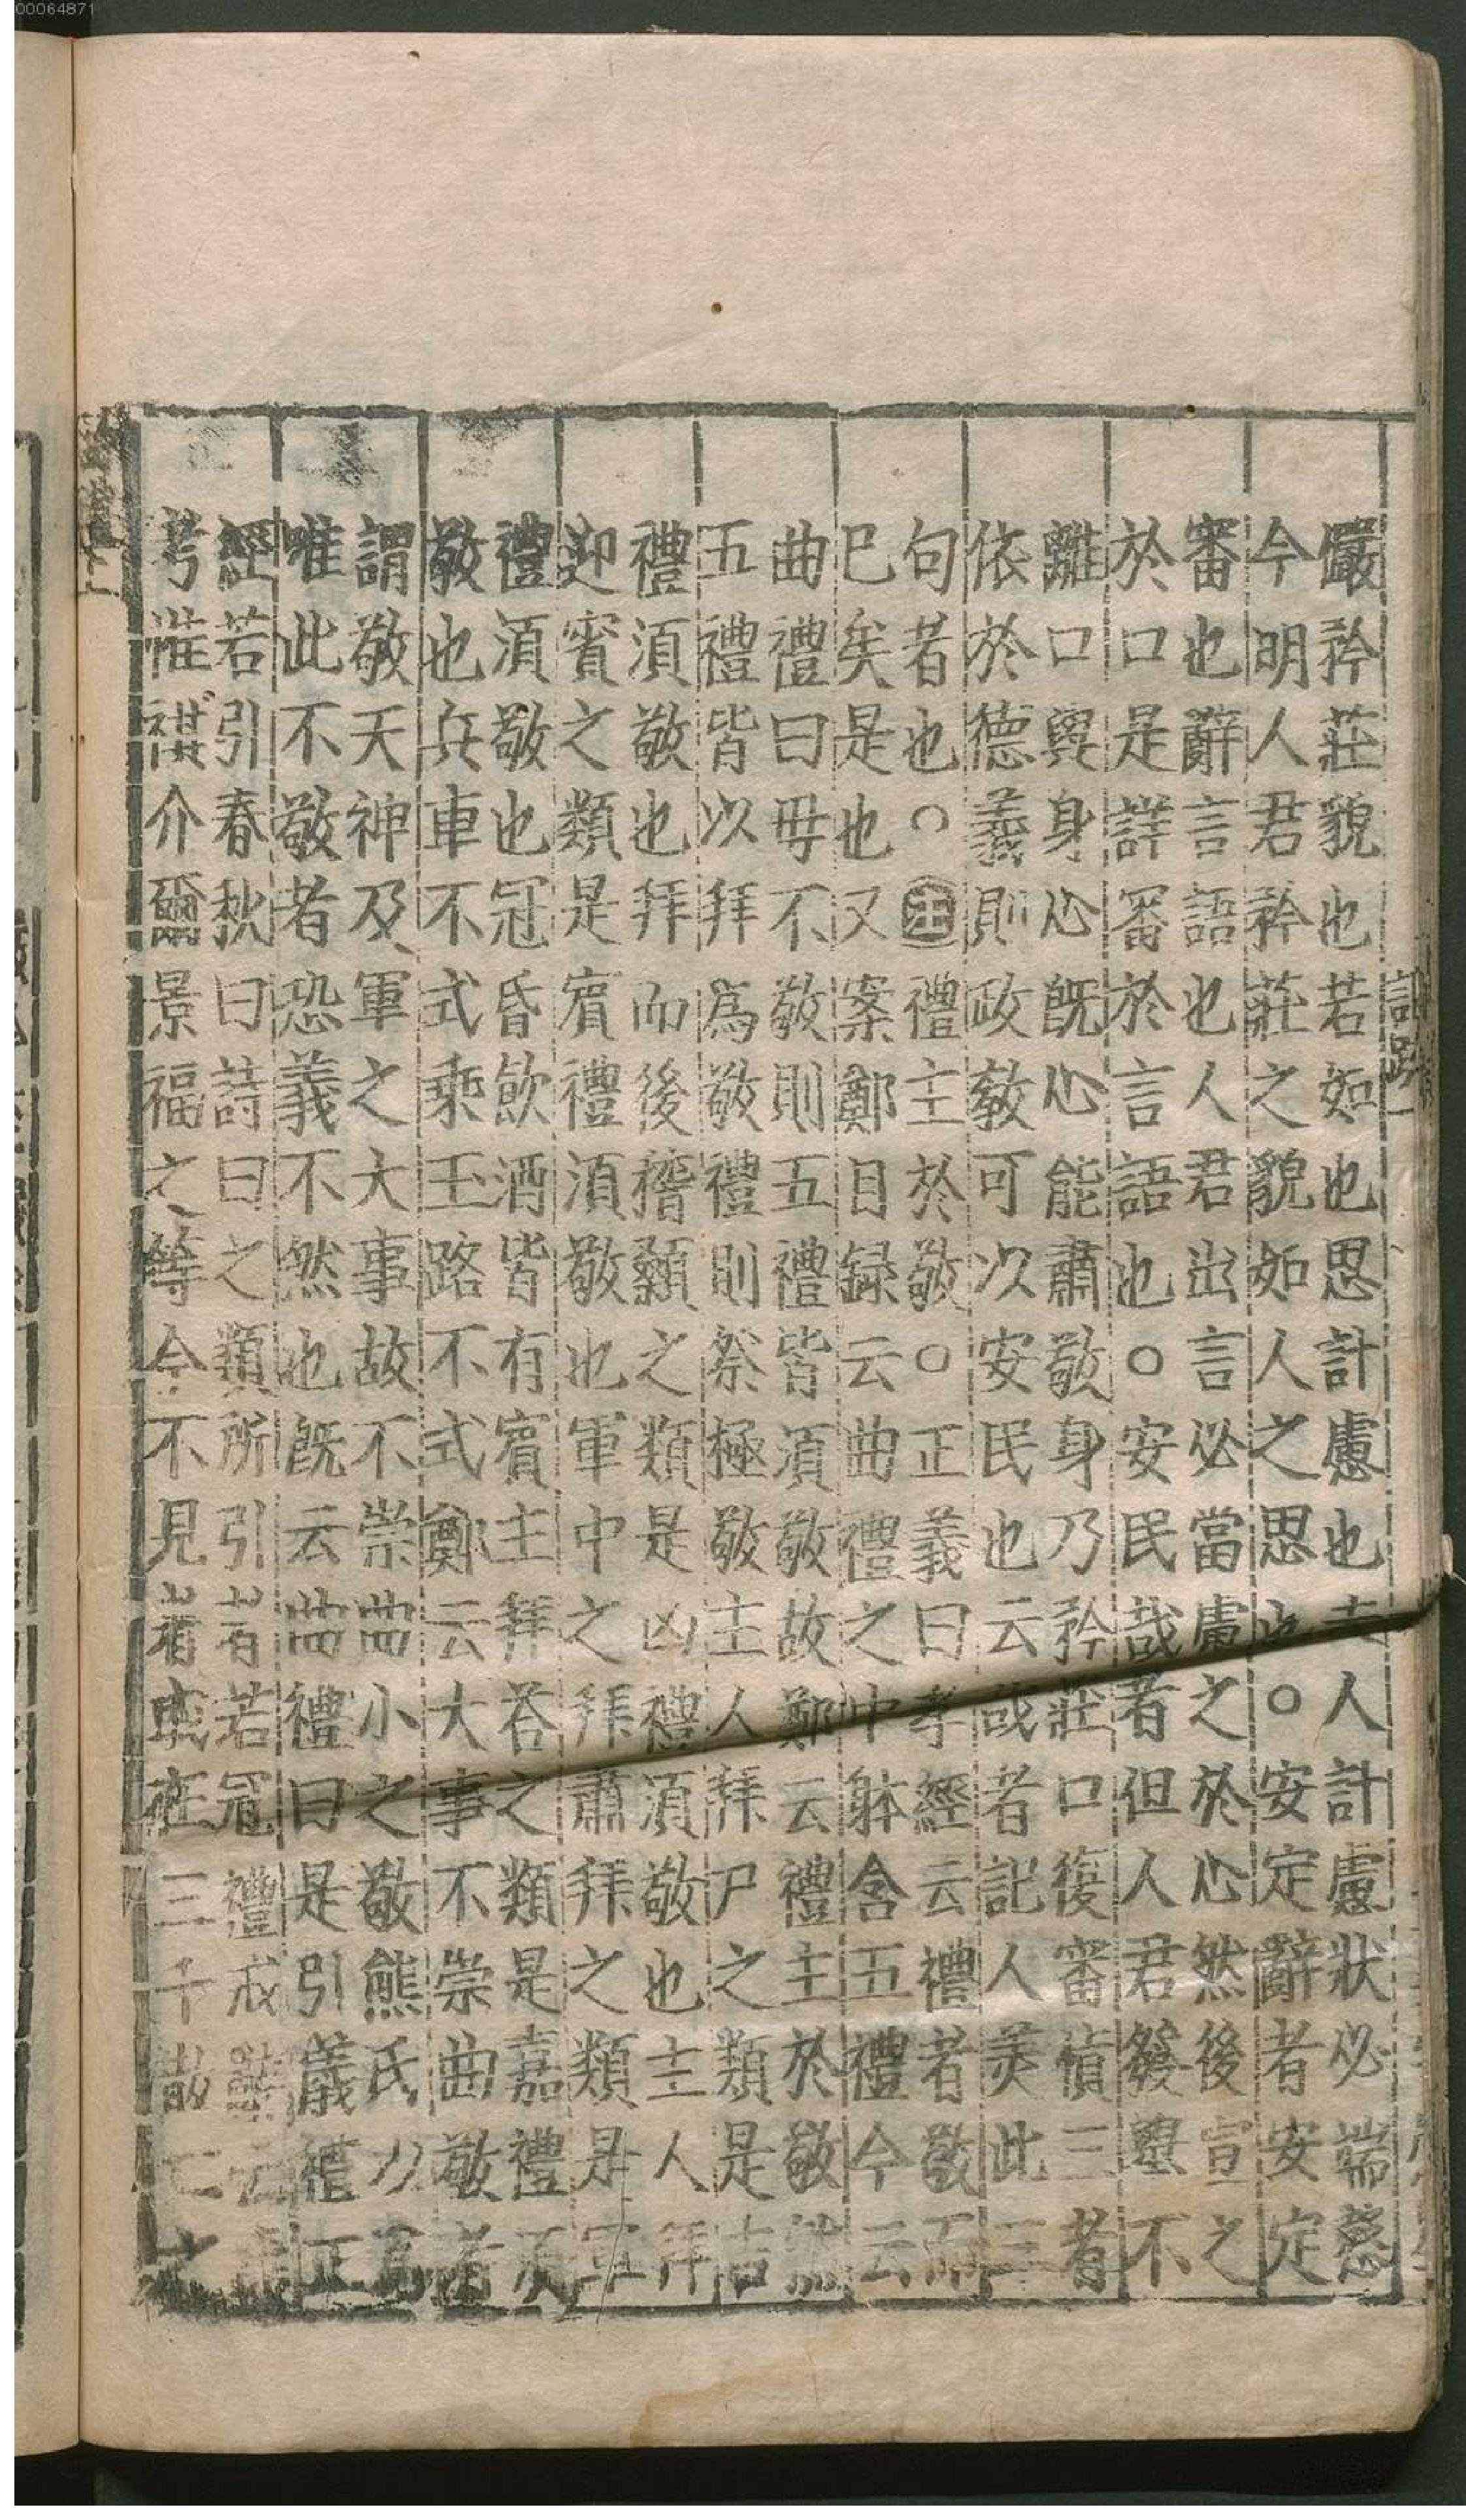 00064871
儼矜莊貌也若如也思計慮也夫人計慮狀必端慤
今明人君矜莊之貌如人之思也○安定辭者安定
審也辭言語也人君出言必當慮之於心然後宣之
於口是詳審於言語也○安民哉者但人君發舉不
離口與身心既心能肅敬身乃矜莊口復審慎三者
依於德義則政教可以安民也云哉者記人美此三
句者也○注禮主於敬○正義曰孝經云禮者敬而
已矣是也又案鄭目録云曲禮之中躰含五禮今云
曲禮曰毋不敬則五禮皆須敬故鄭云禮主於敬然
五禮皆以拜為敬禮則祭極敬主人拜尸之類是吉
禮須敬也拜而後稽顙之類是凶禮須敬也主人拜
迎賓之類是賓禮須敬也軍中之拜肅拜之類是軍
禮須敬也冠昏飲酒皆有賓主拜荅之類是嘉禮須
敬也兵車不式乘玉路不式鄭云大事不崇曲敬者
謂敬天神及軍之大事故不崇曲小之敬熊氏以為
唯此不敬者恐義不然也既云曲禮曰是引儀禮正
經若引春秋曰詩曰之類所引者若冠禮戒辭云壽
考惟祺介爾景福之等今不見者或在三千散亡之